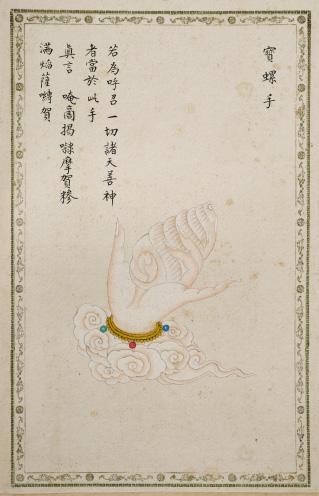 寶螺手
若為呼召一切諸天善神
者當於此手
眞言 唵商揭㘑摩賀糝
滿焰薩嚩賀